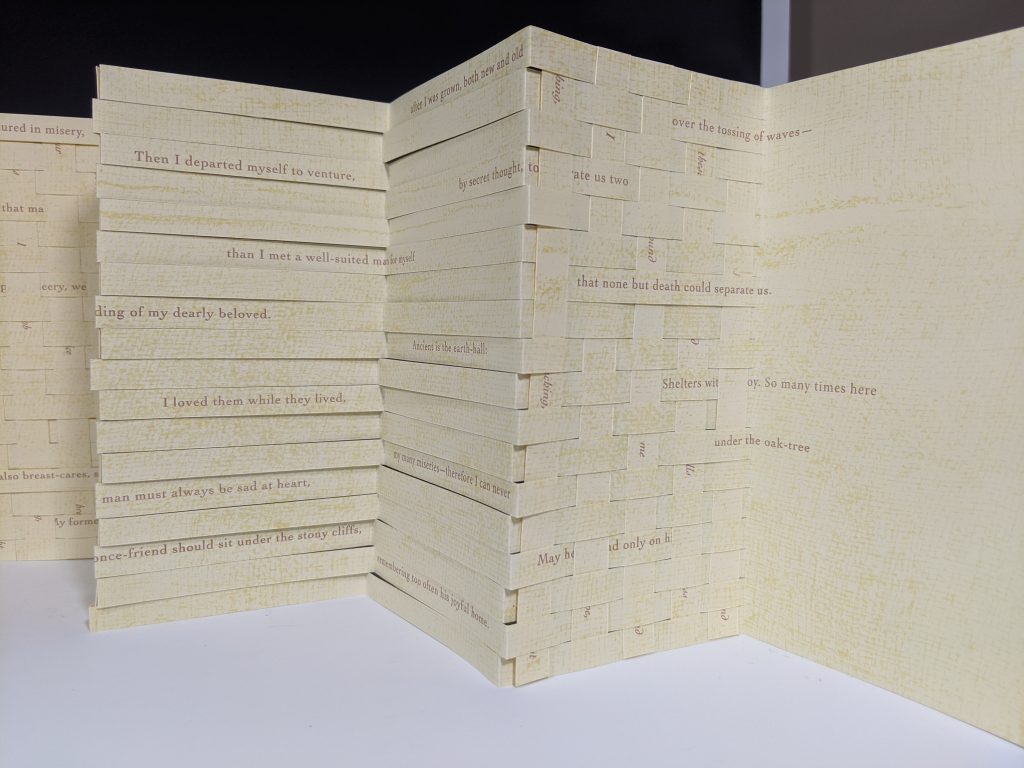 ured in misery,
that ma
eery, we
also breast-cares, s
My forme
Then I departed myself to venture,
than I met a well-suited man for myself
ding of my dearly beloved.
I loved them while they lived,
man must always be sad at heart,
once-friend should sit under the stony cliffs,
after I was grown, both new and old
by secret thought, to
rate us two
Ancient is the earth-hall:
my many miseries—therefore I can never
remembering too often his joyful home.
over the tossing of waves—
that none but death could separate us.
Shelters wit
oy. So many times here
under the oak-tree
May he
nd only on h
hing,
I
I
me